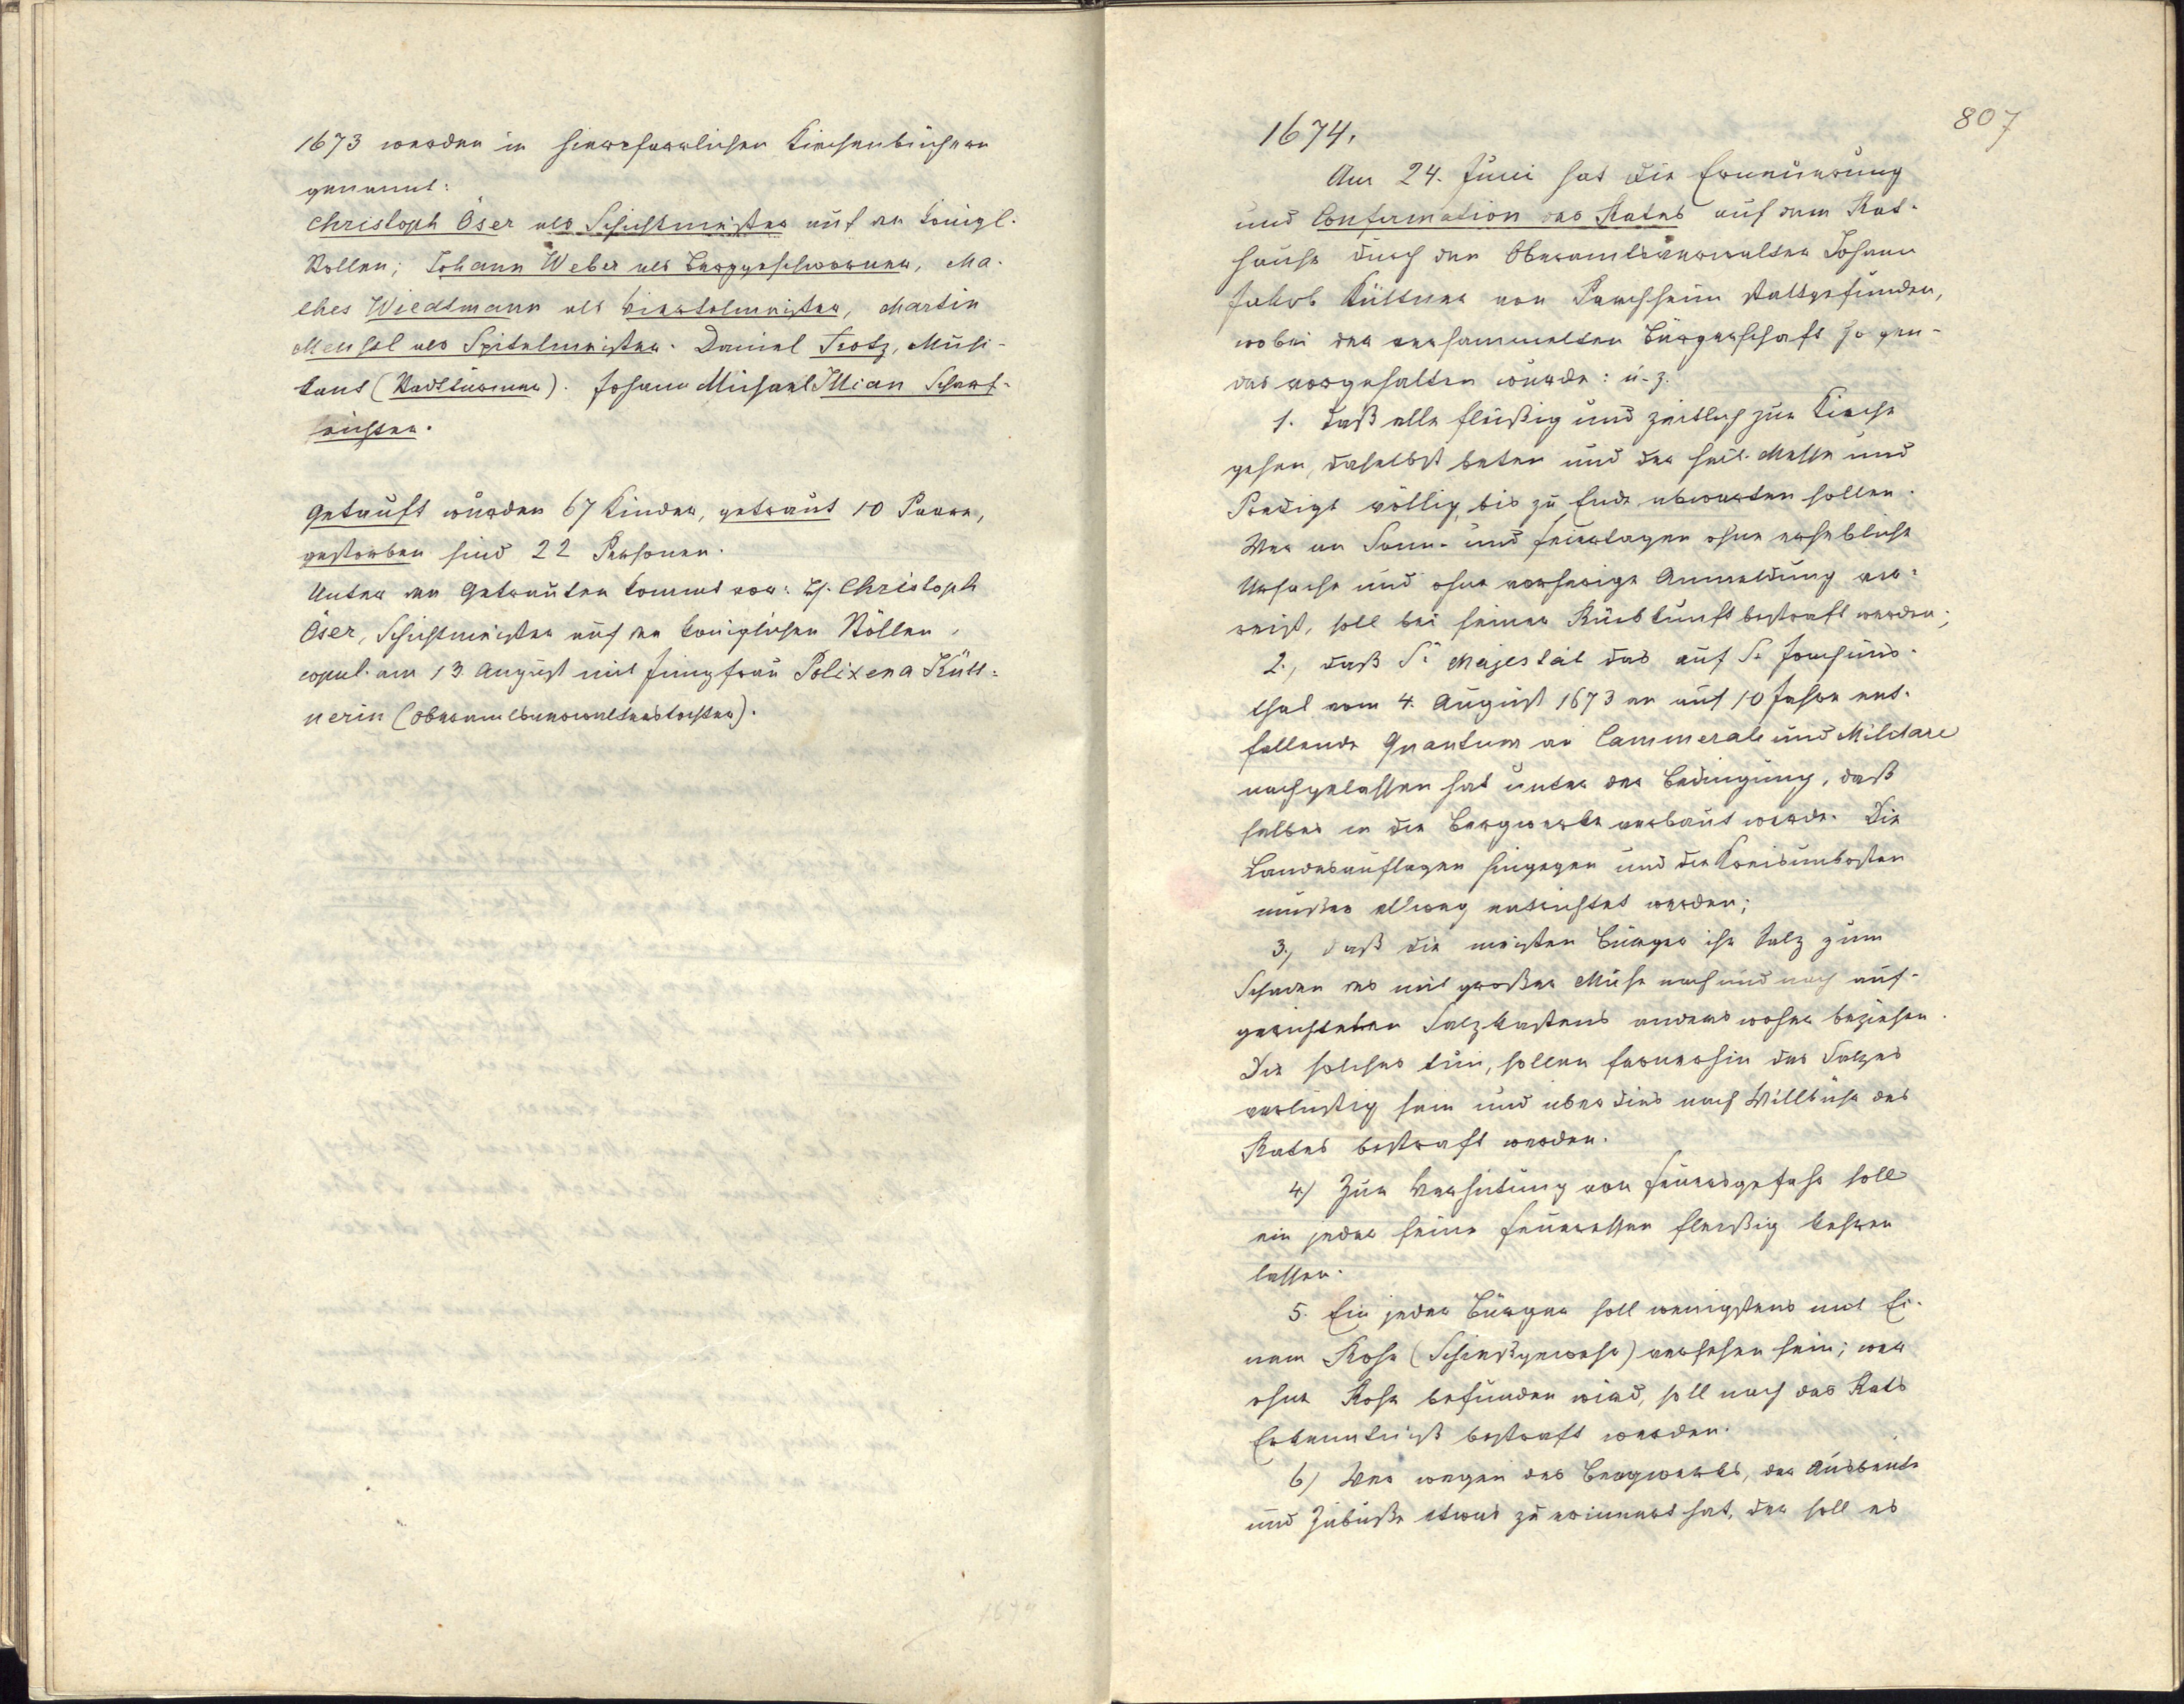 1673 werden in hierpfarrlichen Kirchenbüchern
genannt:
Christoph Öser als Schichtmeister auf den königl.
Stollen; Johann Weber als Berggeschworner, Ma-
thes Wiedtmann als Viertelmeister, Martin
Mensel als Spitelmeister. Daniel Trotz, Musi-
kant (Stadttürmer). Johann Michael Illian Scharf-
richter.
Getauft wurden 67 Kinder, getraut 10 Paare,
gestorben sind 22 Personen.
Unter den Getrauten kommt vor: H. Christoph
Öser, Schichtmeister auf den königlichen Stöllen,
copul. am 13. August mit Jungfrau Polixena Kütt-
nerin (Oberamtsverwalterstochter).
1674
807
1674.
Am 24. Juni hat die Erneuerung
und Confirmation des Rates auf dem Rat-
hause durch den Oberamtsverwalter Johann
Jakob Küttner von Parchheim stattgefunden,
wobei der versammelten Bürgerschaft folgen-
des vorgehalten wurde: u. z.
1. daß alle fleißig und zeitlich zur Kirche
gehen, daselbst beten und der heil. Messe und
Predigt völlig, bis zu Ende abwarten sollen.
Wer an Sonn- und Feiertagen ohne erhebliche
Ursache und ohne vorherige Anmeldung ver-
reist, soll bei seiner Rückkunft bestraft werden;
2., daß Se Majestät das auf St. Joachims-
thal vom 4. August 1673 an auf 10 Jahre ent-
fallende Quantum an Cammerale und Militare
nachgelassen hat unter der Bedingung, daß
selbes in die Bergwerke verbaut werde. Die
Landesauflagen hingegen und die Kreisunkosten
müßten allweg entrichtet werden;
3., daß die meisten Bürger ihr Salz zum
Schaden des mit großer Mühe nach und nach auf-
gerichteten Salzkastens anders woher beziehen.
Die solches tun, sollen fernerhin des Salzes
verlustig sein und über dies nach Willkühr des
Rates bestraft werden.
4) Zur Verhütung von Feuersgefahr soll
ein jeder seine Feueressen fleißig kehren
lassen.
5. Ein jeder Bürger soll wenigstens mit Ei-
nem Rohr (Schießgewehr) versehen sein; wer
ohne Rohr befunden wird, soll nach des Rats
Erkenntniß bestraft werden.
6) Wer wegen des Bergwerks, der Ausbeute
und Zubuße etwas zu erinnert hat, der soll es